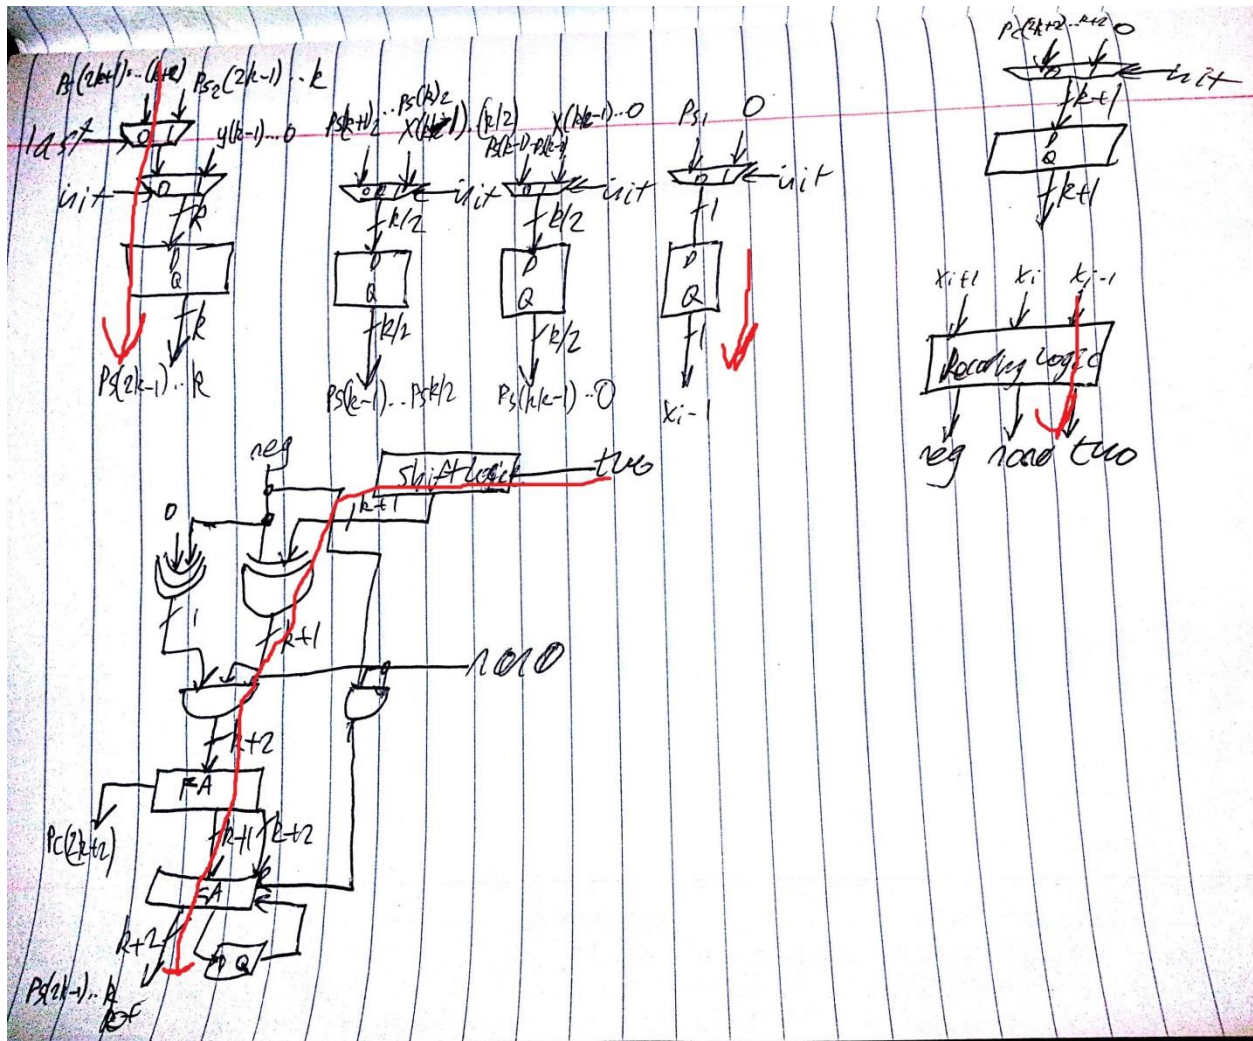 Ps(2k+1)...(k+2) Ps2(2k-1)..k
last
0 1
y(k-1)...0
init
0
k
D
Q
k
Ps(2k-1)..k
Ps(k+1)2...Ps(k)2
(k/2)
init
k/2
D
Q
k/2
Ps(k-1)..Psk/2
X(k/2-1)..0
0 1
init
k/2
D
Q
k/2
Ps1 0
0 1
init
1
D
Q
1
xi-1
0
init
k+1
D
Q
k+1
xi+1 xi xi-1
Recoding Logic
neg two
neg
Shift Logic
two
k+1
0
1
k+1
k+2
FA
PC(2k+2)
k+1
k+2
k+2
D Q
Ps(2k-1)..k